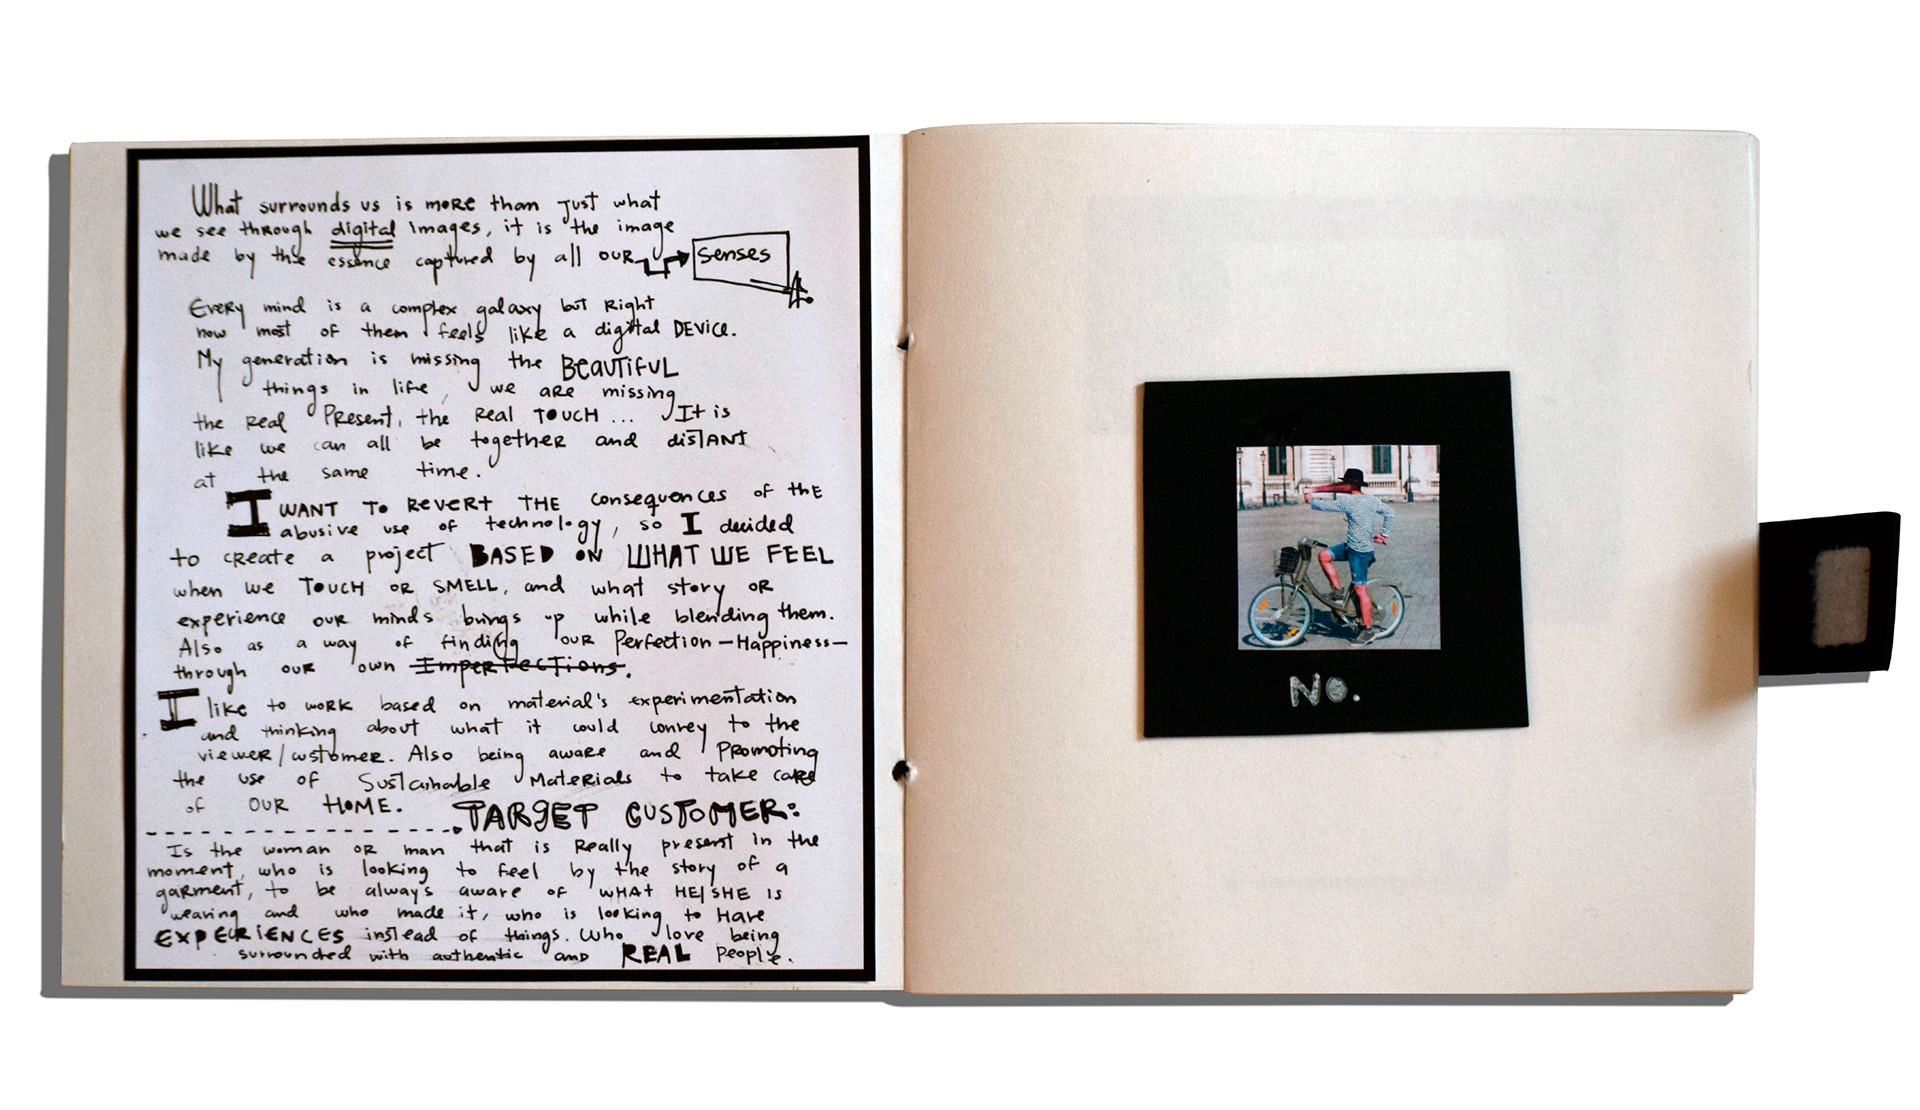 What surrounds us is more than just what
we see through digital images, it is the image
made by the essence captured by all our senses
Every mind is a complex galaxy but Right
now most of them feels like a digital DEVICE.
My generation is missing the BEAUTIFUL
things in life, we are missing
the real Present, the Real TOUCH ... It is
like we can all be together and disTANT
at the same time.
I WANT TO REVERT THE consequences of thE
abusive use of technology, so I decided
to create a project BASED ON WHAT WE FEEL
when we TOUCH OR SMELL, and what story OR
experience our minds brings up while blending them.
Also as a way of finding our Perfection - Happiness -
through our own Imperfections.
I like to work based on material's experimentation
and thinking about what it could convey to the
viewer/customer. Also being aware and Promoting
the use of Sustainable Materials to take care
of OUR HOME. TARGET CUSTOMER:
Is the woman OR man that is Really present in the
moment, who is looking to feel by the story of a
garment, to be always aware of WHAT HE/SHE IS
wearing and who made it, who is looking to Have
EXPERIENCES instead of things. Who love being
surrounded with authentic and REAL People.
NO.